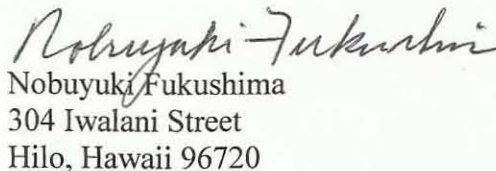 Nobuyuki Fukushima
Nobuyuki Fukushima
304 Iwalani Street
Hilo, Hawaii 96720